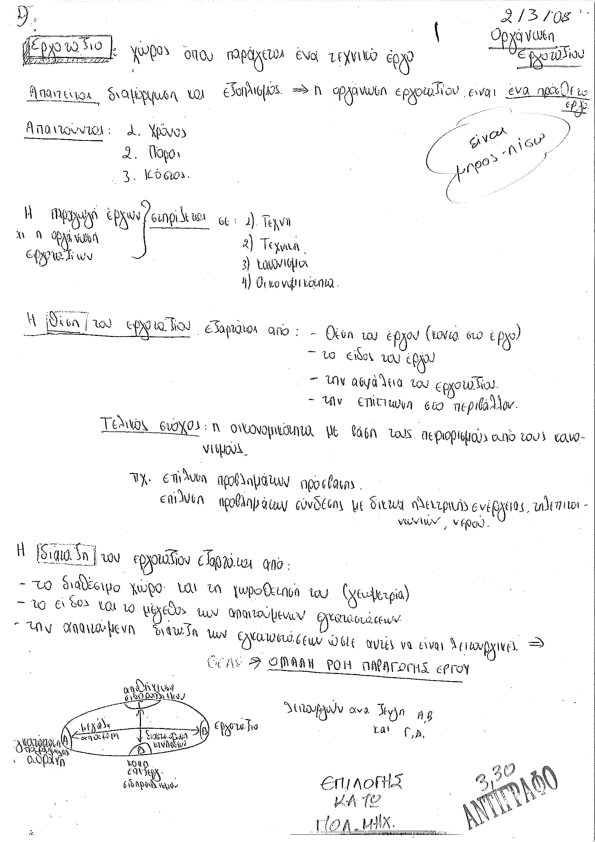 1)
2/3/08
Οργάνωση
Εργοταξίου
Εργοτάξιο : χώρος όπου παράγεται ένα τεχνικό έργο
Απαιτείται διαμόρφωση και εξοπλισμός ⇒ η οργάνωση εργοταξίου είναι ένα πρόσθετο
έργο
Απαιτούνται : 1. Χρόνος
2. Πόροι
3. Κόστος
είναι
μπρος-πίσω
Η παραγωγή έργων στηρίζεται σε : 1) Τέχνη
κι η οργάνωση
εργοταξίων
2) Τεχνική
3) κανονισμοί
4) Οικονομικότητα.
Η θέση του εργοταξίου εξαρτάται από : - Θέση του έργου (κοντά στο έργο)
- το είδος του έργου
- την ασφάλεια του εργοταξίου.
- την επίπτωση στο περιβάλλον.
Τελικός στόχος : η οικονομικότητα με βάση τους περιορισμούς από τους κανο-
νισμούς.
πχ. επίλυση προβλημάτων πρόσβασης.
επίλυση προβλημάτων σύνδεσης με δίκτυα ηλεκτρικής ενέργειας, τηλεπικοι-
νωνιών, νερού.
Η διάταξη του εργοταξίου εξαρτάται από :
- το διαθέσιμο χώρο και τη χωροθέτησή του (γεωμετρία)
- το είδος και το μέγεθος των απαιτούμενων εγκαταστάσεων
- την απαιτούμενη διάταξη των εγκαταστάσεων ώστε αυτές να είναι λειτουργικές ⇒
→ ΟΜΑΛΗ ΡΟΗ ΠΑΡΑΓΩΓΗΣ ΕΡΓΟΥ
αποθήκευση
μεγάλη
απόσταση
Β εργοτάξιο
Α
λειτουργούν ανα ζεύγη Α,Β
και Γ,Δ.
ΕΠΙΛΟΓΗΣ
ΚΑΤΩ
ΠΟΛ. ΜΗΧ.
3,30
ΑΝΤΙΓΡΑΦΟ